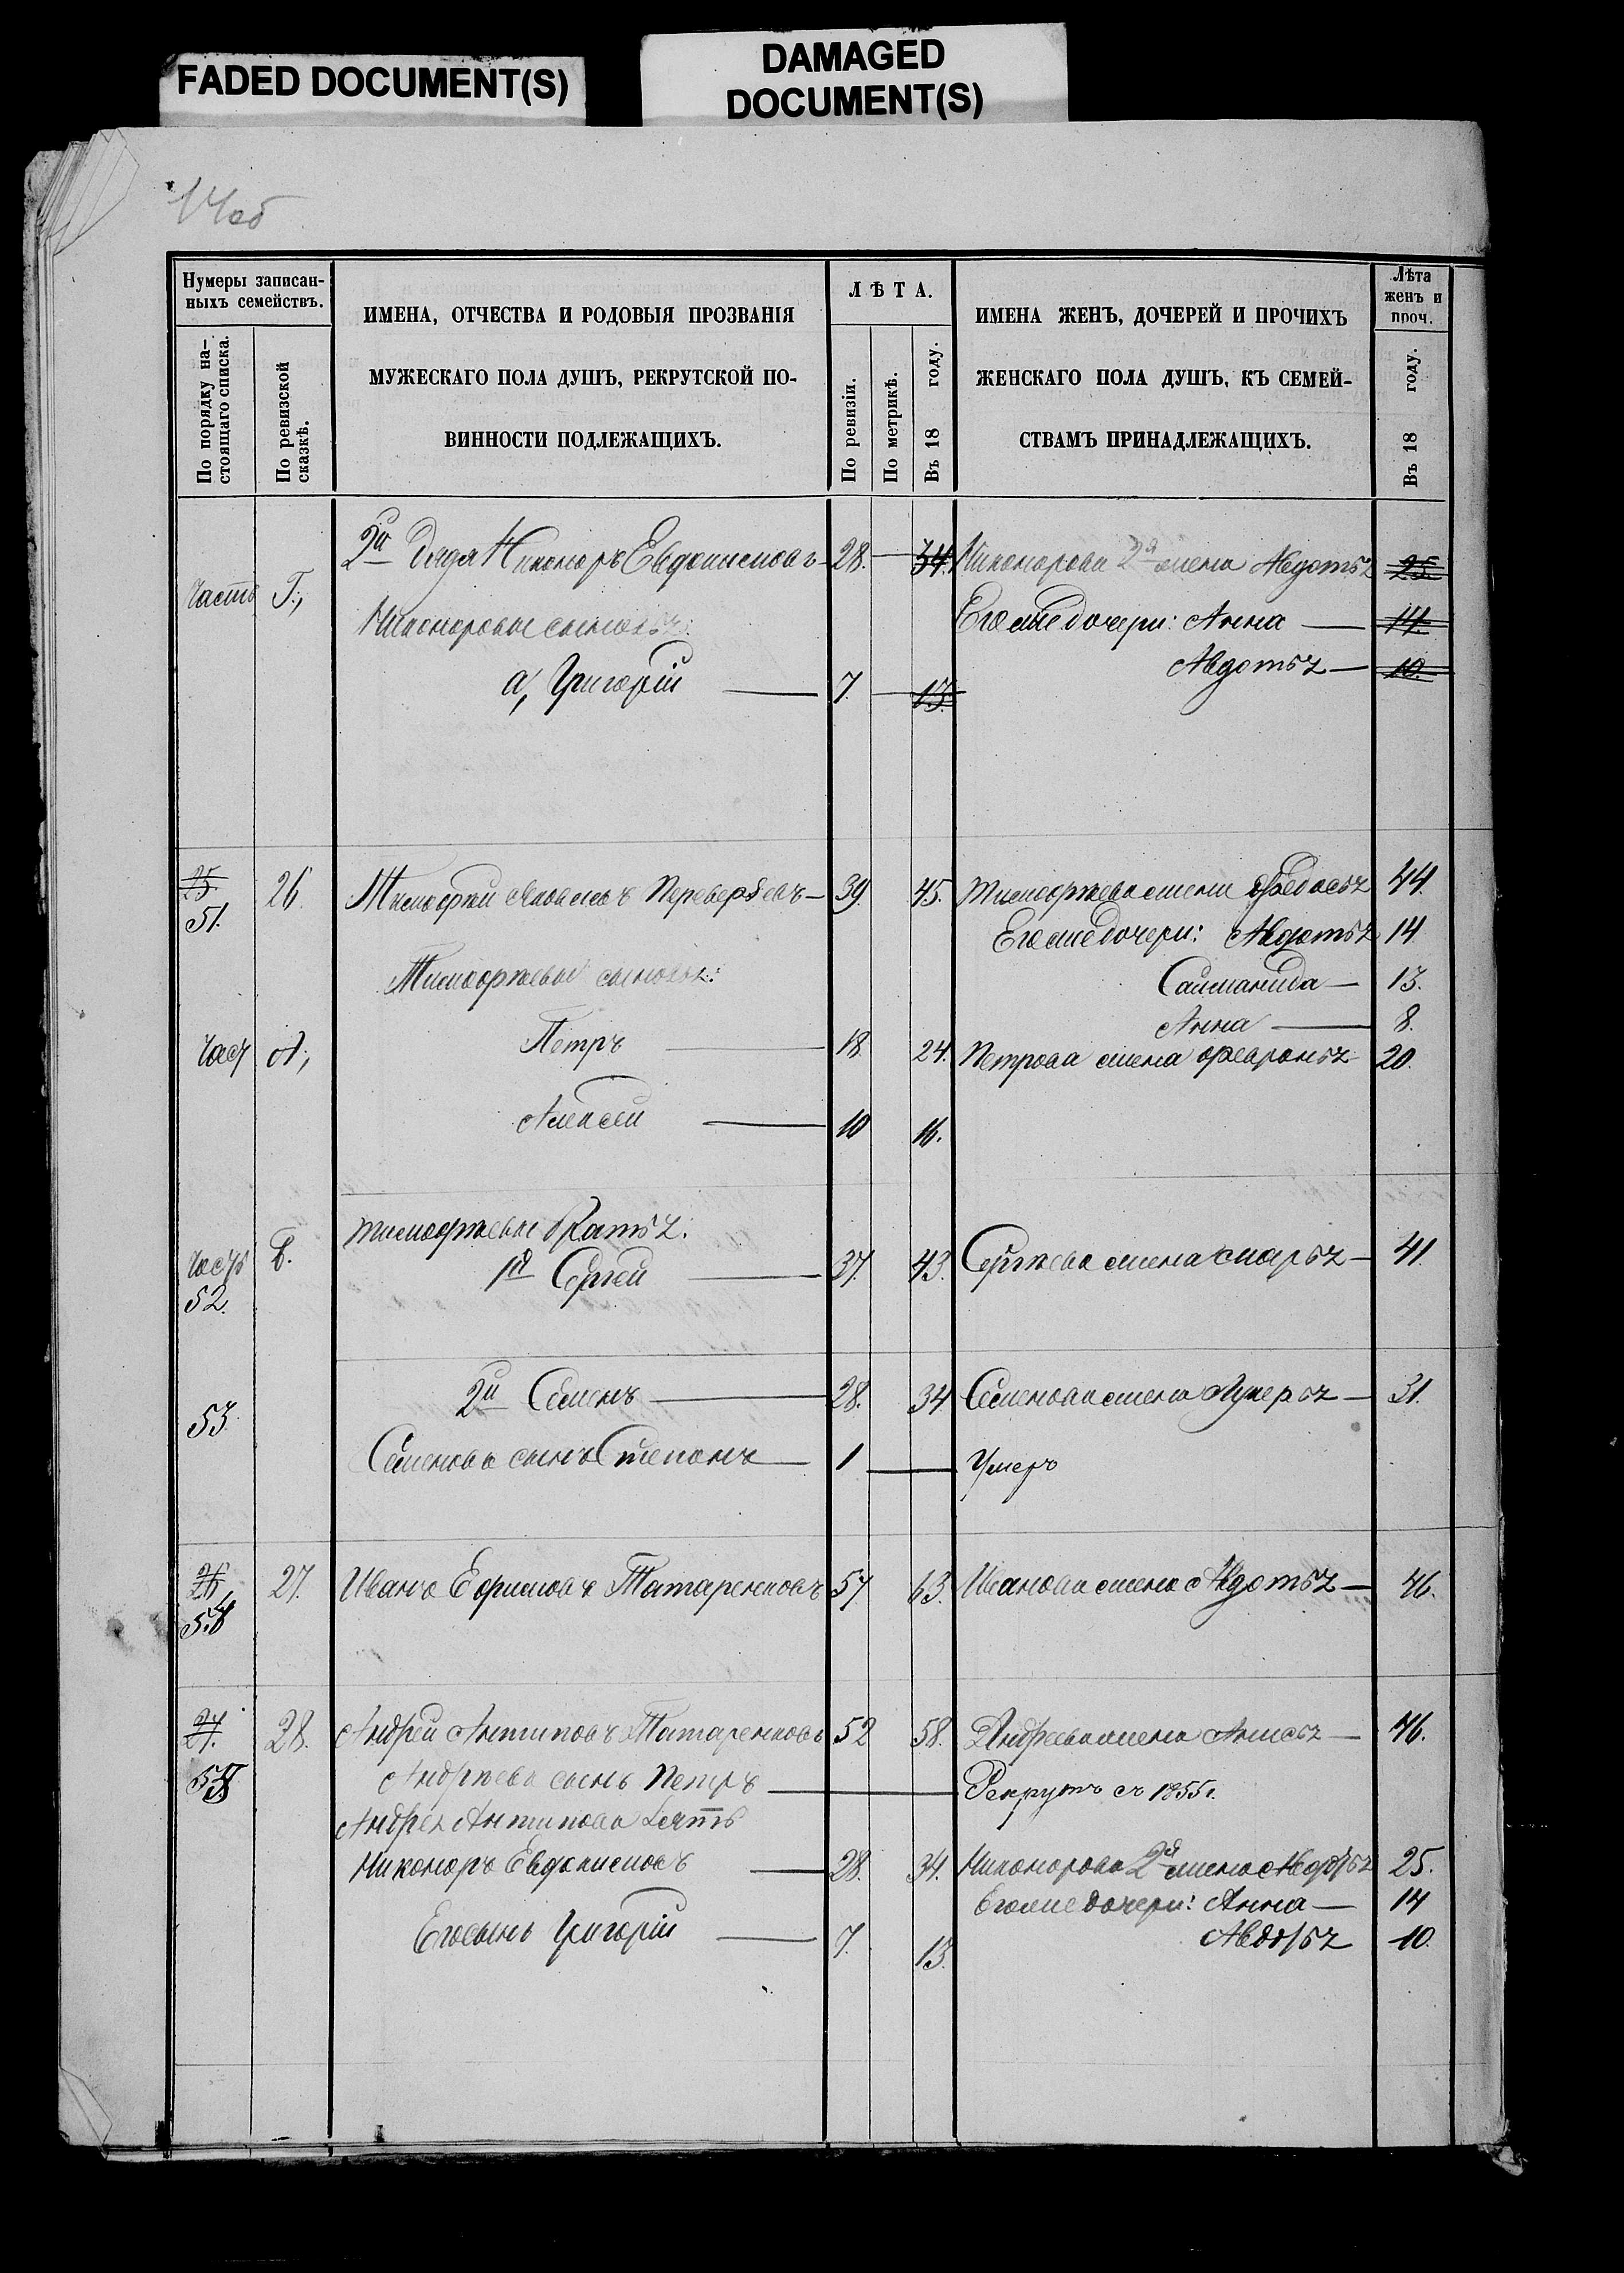 FADED DOCUMENT(S)
DAMAGED
DOCUMENT(S)
14об
Нумеры записан-
ныхъ семействъ.
По порядку на-
стоящаго списка.
По ревизской
сказкѣ.
ИМЕНА, ОТЧЕСТВА И РОДОВЫЯ ПРОЗВАНІЯ
МУЖЕСКАГО ПОЛА ДУШЪ, РЕКРУТСКОЙ ПО-
ВИННОСТИ ПОДЛЕЖАЩИХЪ.
ЛѢТА.
По ревизіи.
По метрикѣ.
Въ 18 году.
ИМЕНА ЖЕНЪ, ДОЧЕРЕЙ И ПРОЧИХЪ
ЖЕНСКАГО ПОЛА ДУШЪ, КЪ СЕМЕЙ-
СТВАМЪ ПРИНАДЛЕЖАЩИХЪ.
Лѣта
женъ и
проч.
Въ 18 году.
2й Дядя Никоноръ Евдокимовъ 28. 34. Никонорова 2я жена Авдотья 25.
Часть Г,
Никоноровы сыновья: Его же дочери: Анна 14.
а, Григорій 7. 13. Авдотья 10.
25. 26 Тимофей Яковлевъ Переверзевъ 39. 45. Тимофѣева жена Федосья 44.
51. Его же дочери: Авдотья 14
Тимофѣевы сыновья: 13.
Анна 8.
Част А, Петръ 18 24. Петрова жена Февронья 20.
Алексей 10 16.
Тимофѣевы братья:
Часть Б. 1й Сергей 37. 43. Сергѣева жена Марья 41.
52.
53. 2й Семенъ 28. 34 Семенова жена Лукерья 31.
Семенова сынъ Степанъ 1 Умеръ
26 27. Иванъ Ефимовъ Татаренковъ 57 63. Иванова жена Авдотья 46.
54
27. 28. Андрей Антиповъ Татаренковъ 52 58. Андреева жена Анисья 46.
55 Андрѣева сынъ Петръ Рекрутъ съ 1855 г.
Андрея Антипова зять
Никоноръ Евдокимовъ 28. 34. Никонорова 2я жена Авдотья 25.
Его же дочери: Анна 14
Его сынъ Григорій 7. 13. Авдотья 10.